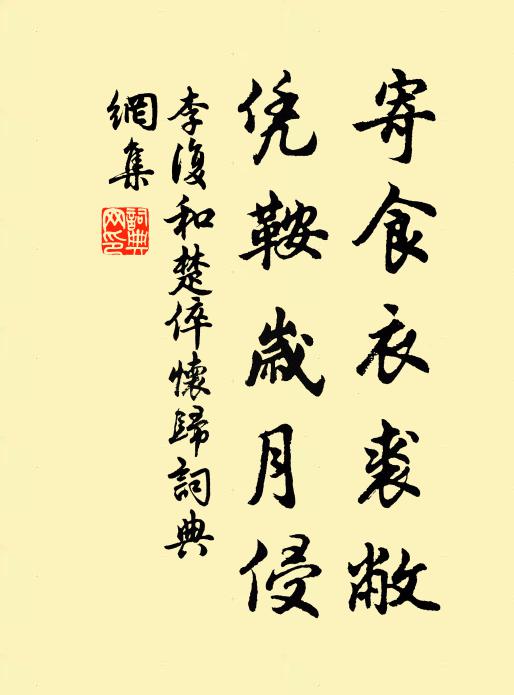 寄食衣裘敝
凭鞍歲月侵
李復和楚倅懷歸詞典
網集
詞典網印